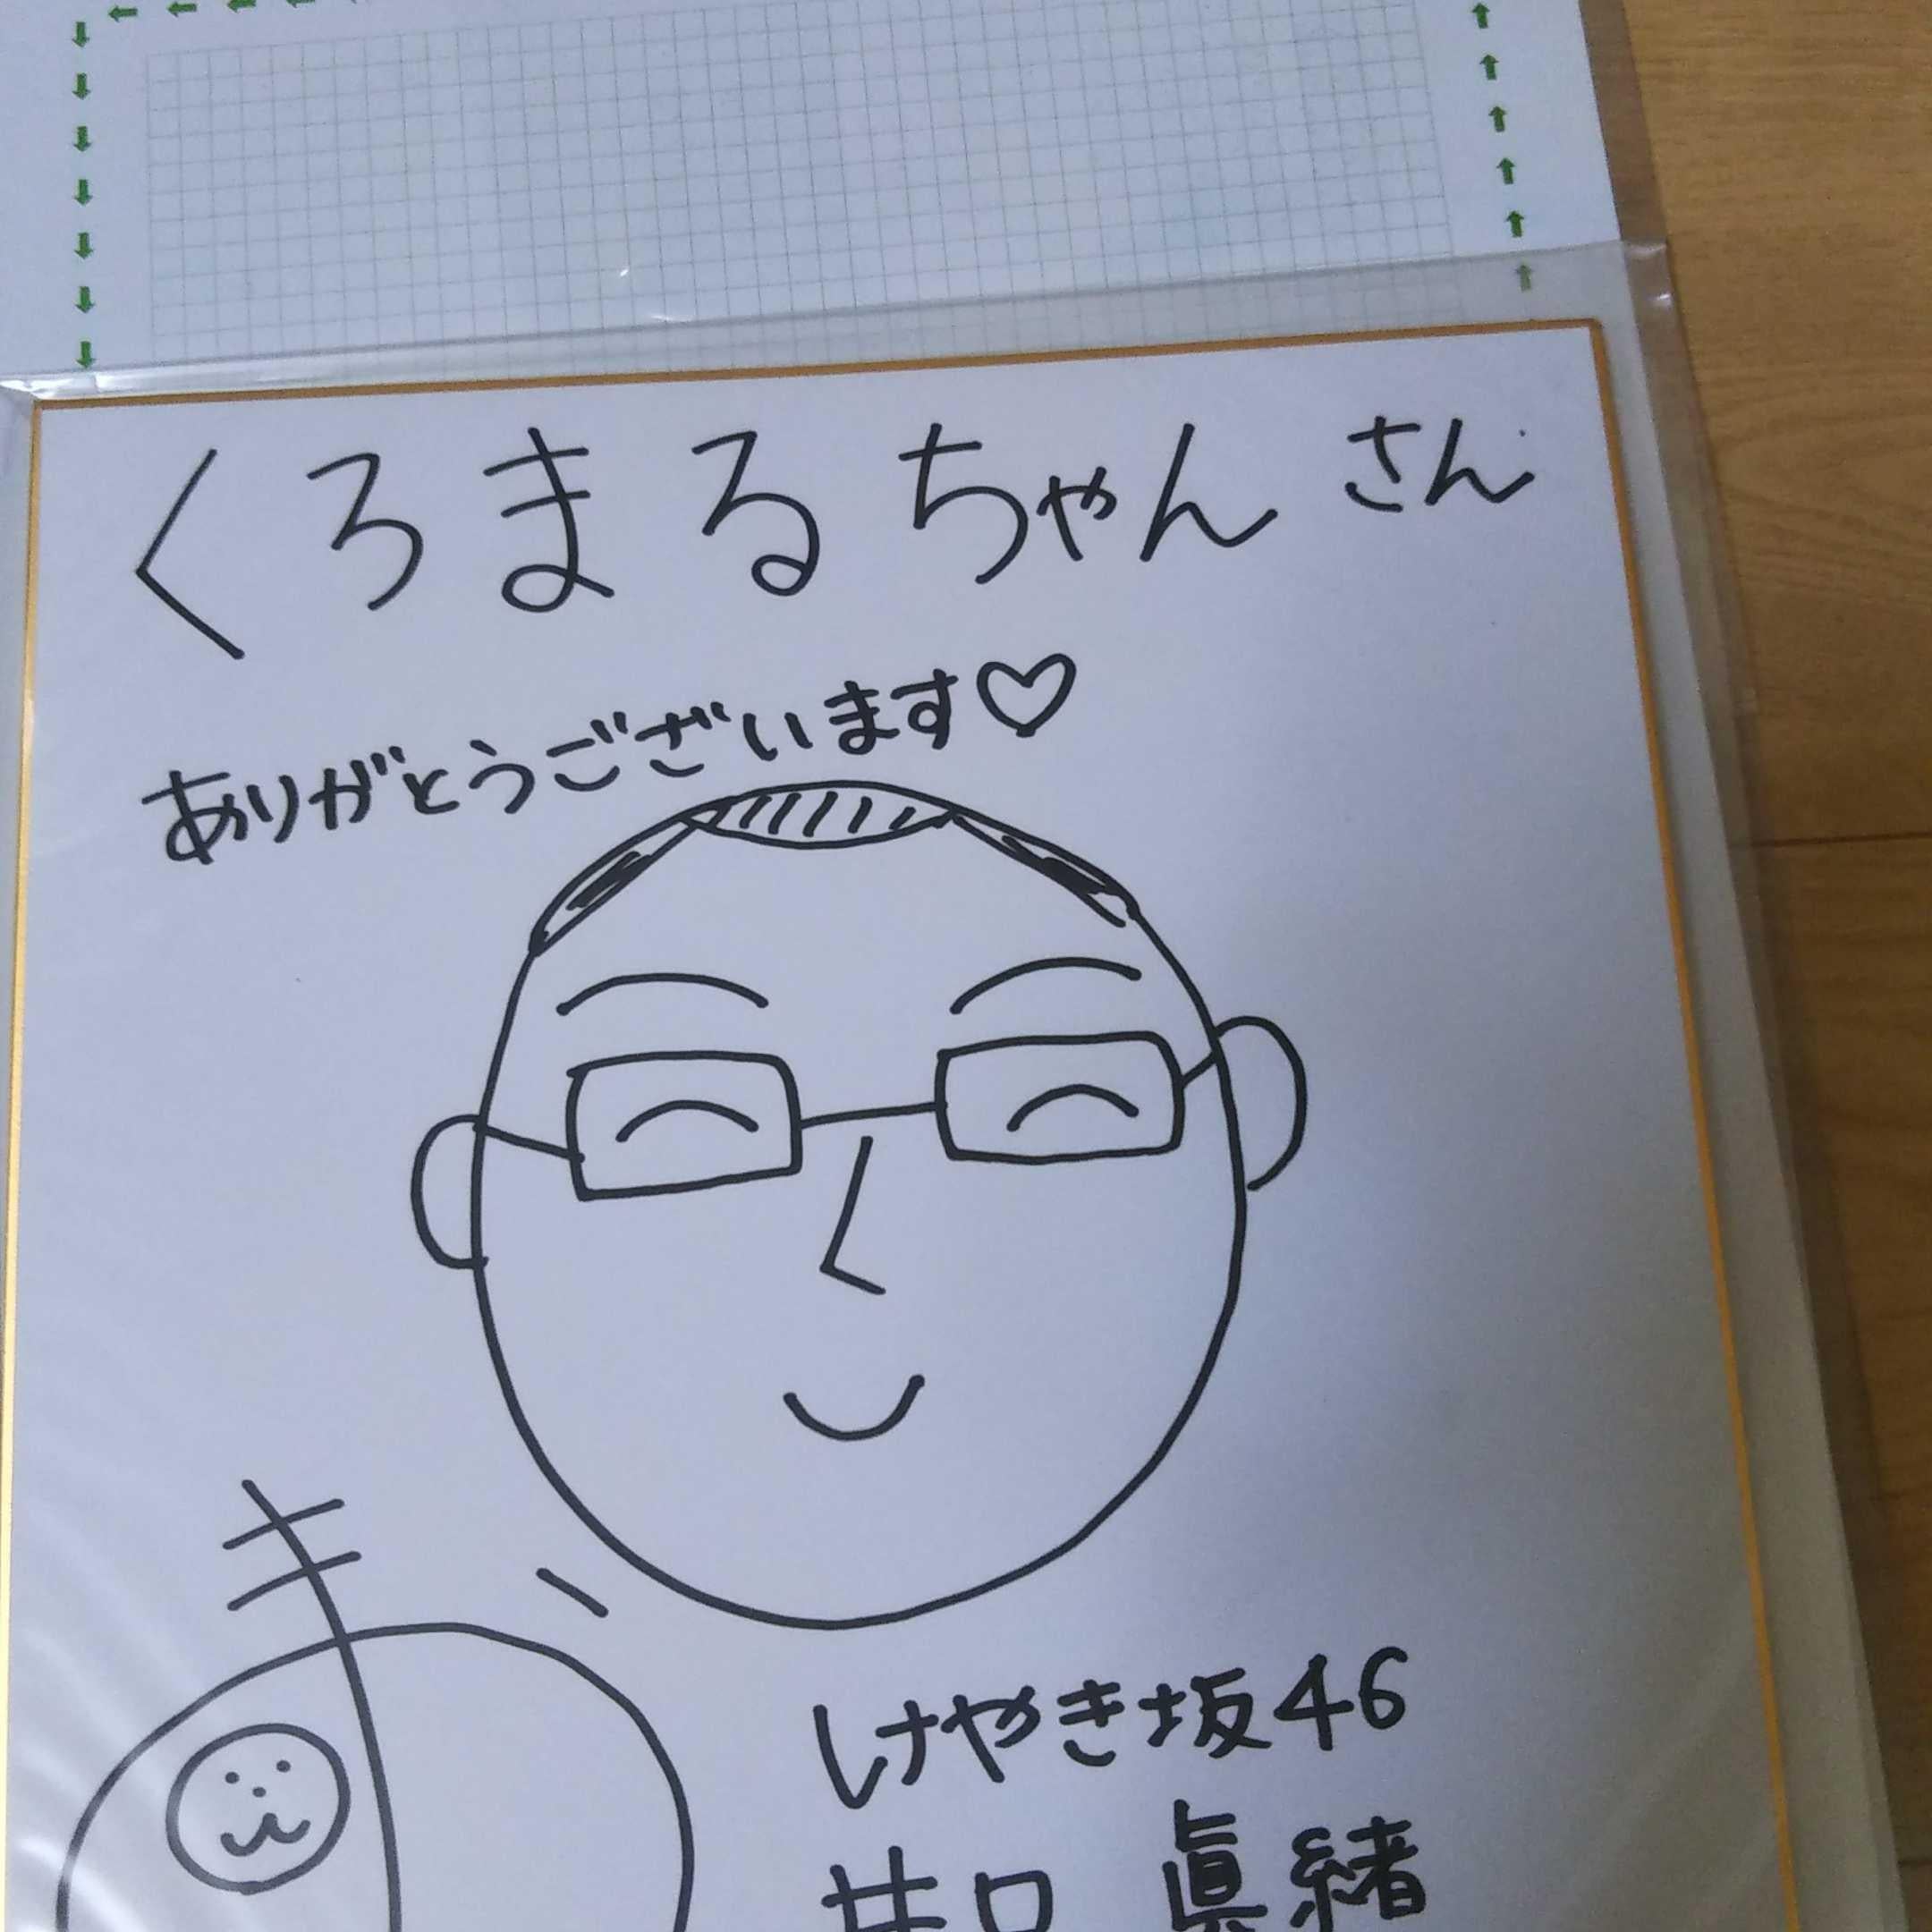 くろまるちゃん さん
ありがとうございます♡
けやき坂46
井口 眞緒